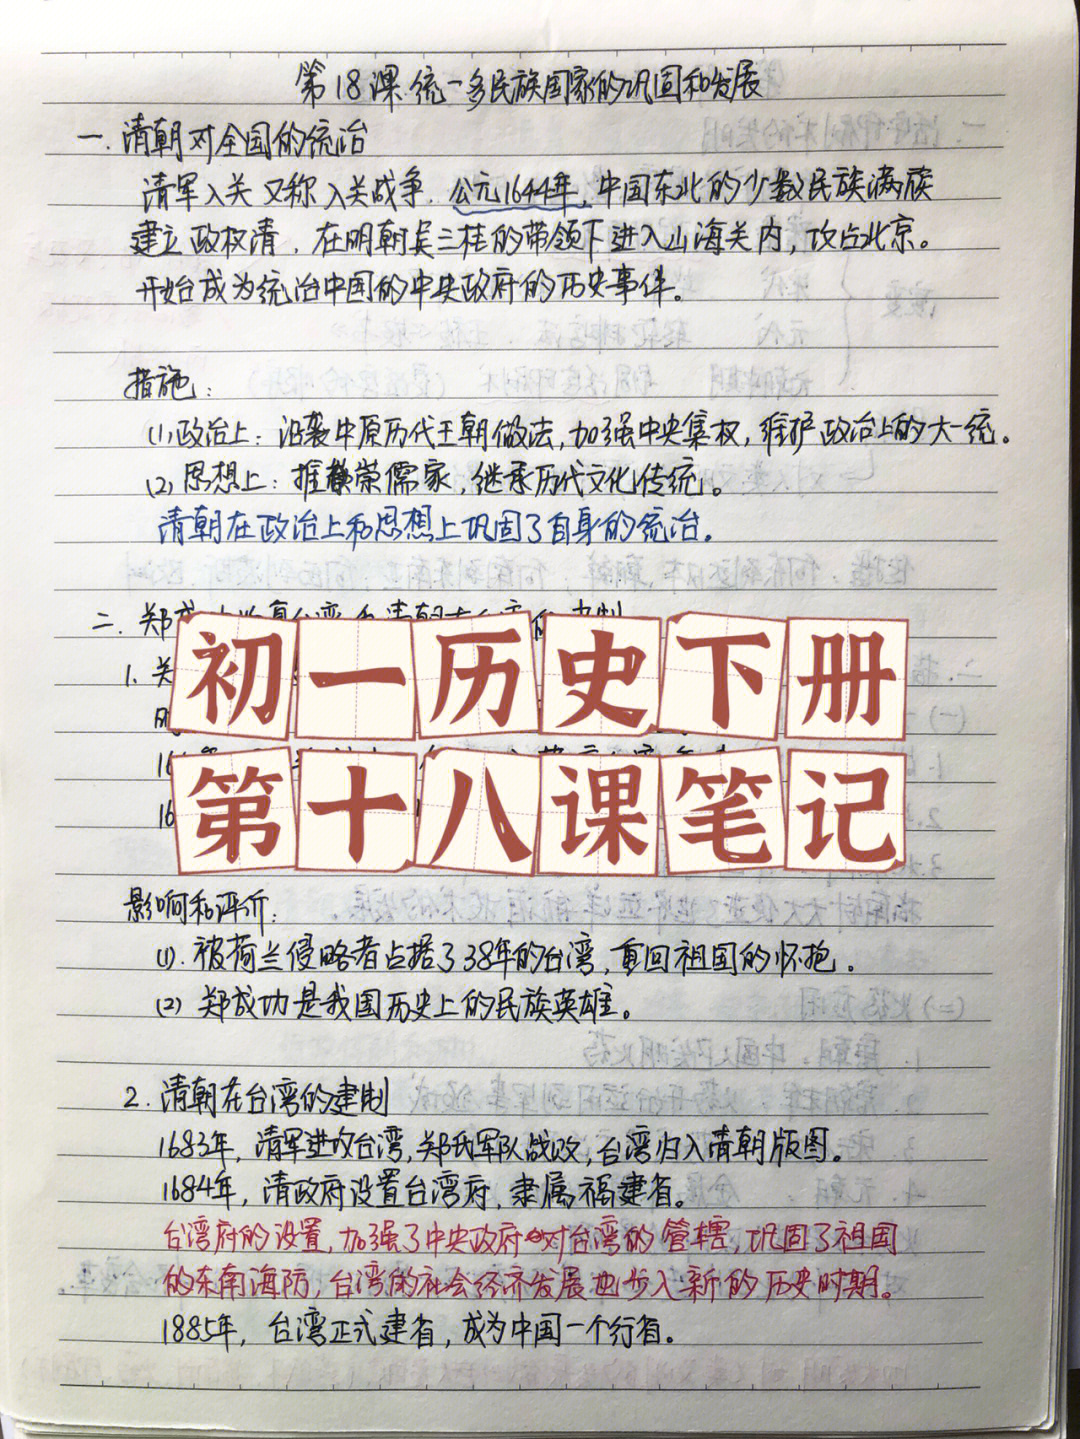 第18课 统一多民族国家的巩固和发展
一. 清朝对全国的统治
清军入关又称入关战争. 公元1644年, 中国东北的少数民族满族
建立政权清, 在明朝吴三桂的带领下进入山海关内, 攻占北京。
开始成为统治中国的中央政府的历史事件。
措施:
(1) 政治上: 沿袭中原历代王朝做法, 加强中央集权, 维护政治上的大一统。
(2) 思想上: 推崇儒家, 继承历代文化传统。
清朝在政治上和思想上巩固了自身的统治。
二. 郑
1. 关
初一历史下册
16
第十八课笔记
16
影响和评价:
(1). 被荷兰侵略者占据了38年的台湾, 重回祖国的怀抱。
(2) 郑成功是我国历史上的民族英雄。
2. 清朝在台湾的建制
1683年, 清军进攻台湾, 郑氏军队战败, 台湾归入清朝版图。
1684年, 清政府设置台湾府, 隶属福建省。
台湾府的设置, 加强了中央政府对台湾的管辖, 巩固了祖国
的东南海防, 台湾的社会经济发展也步入新的历史时期。
1885年, 台湾正式建省, 成为中国一个行省。